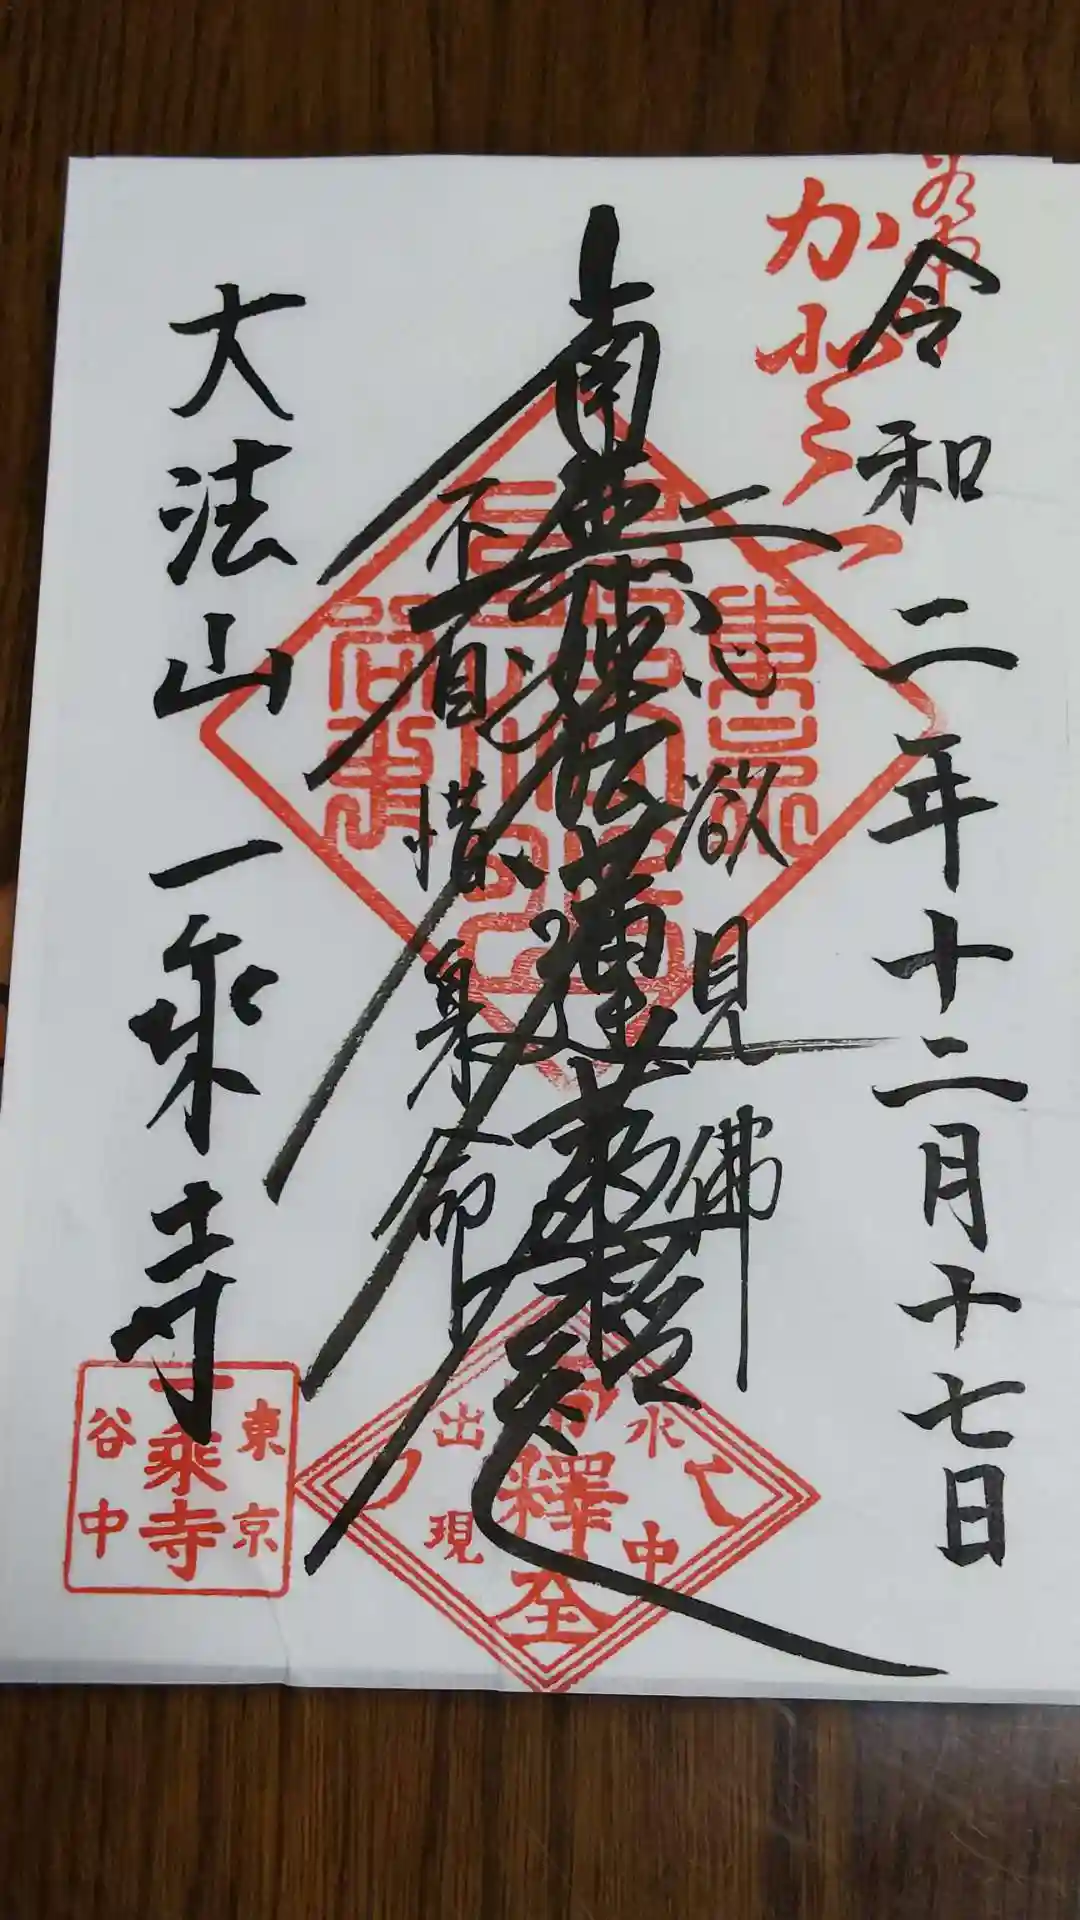 令和二年十二月十七日
一心欲見佛
南無妙法蓮華経
不自惜身命
大法山一乗寺
水中
出現
東京
一乗寺
谷中